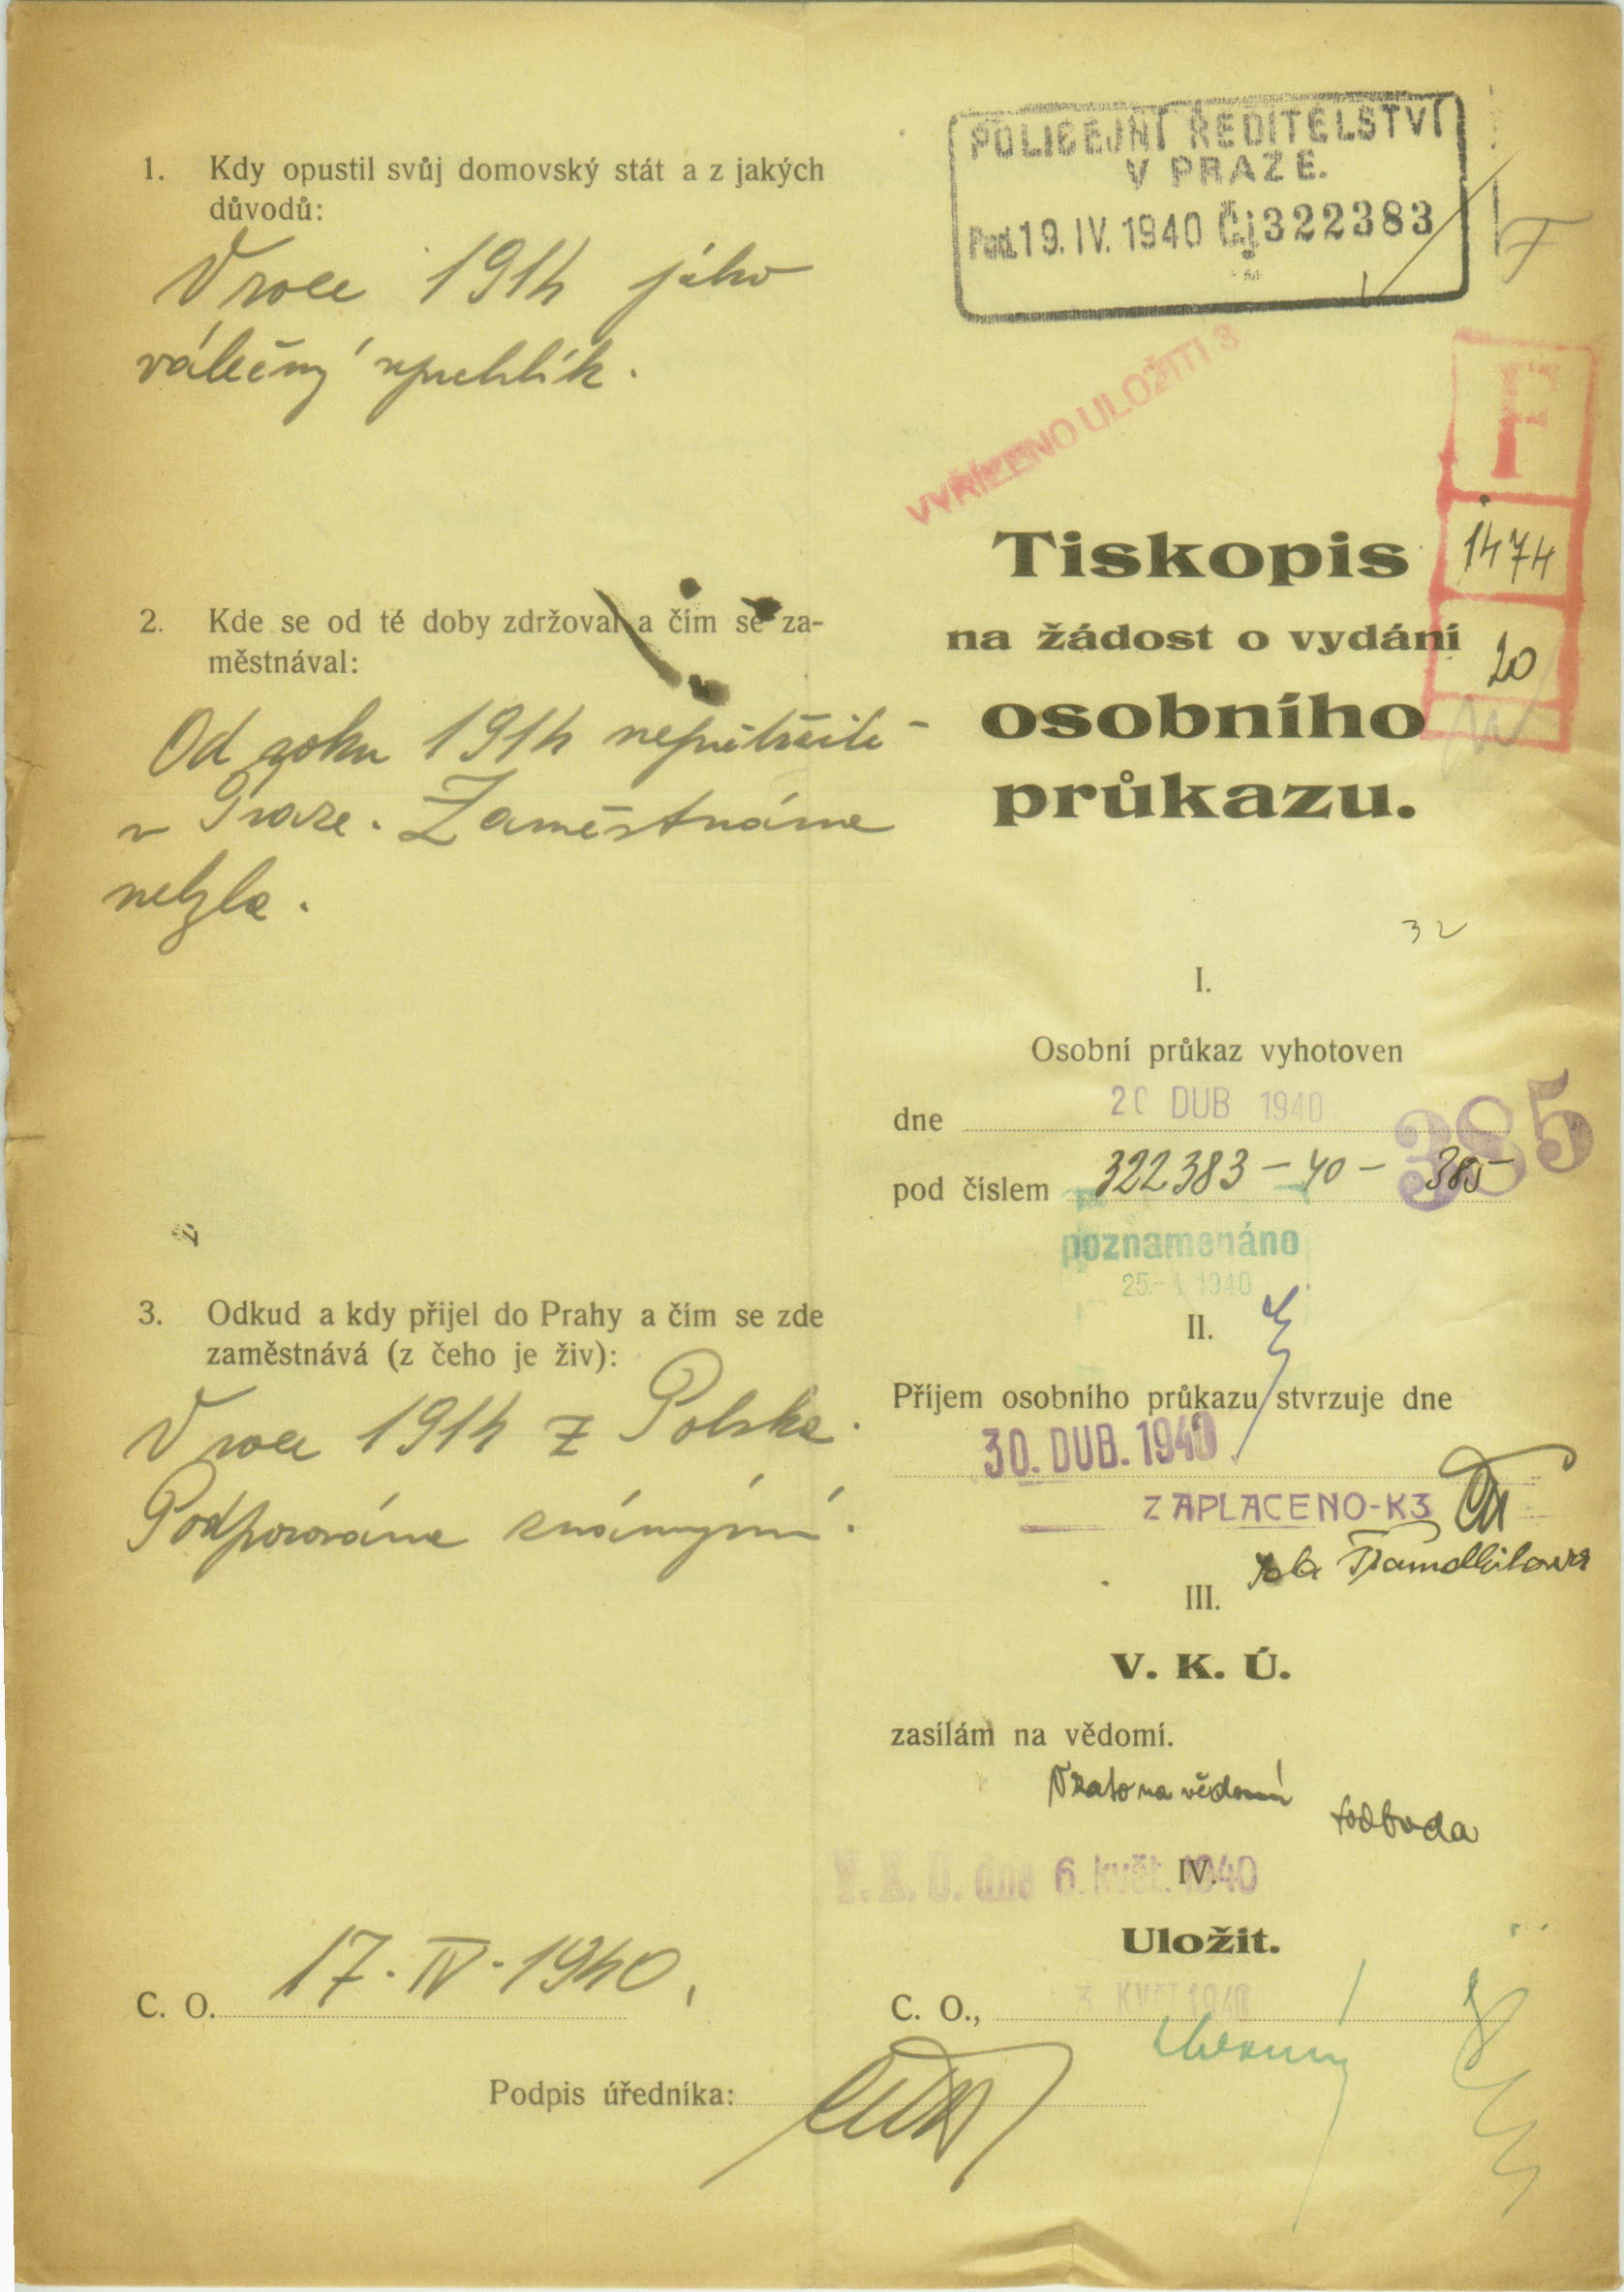 1. Kdy opustil svůj domovský stát a z jakých
důvodů:
V roce 1914 jako
válečný uprchlík.
2. Kde se od té doby zdržoval a čím se za-
městnával:
Od roku 1914 nepřetržitě
v Praze. Zaměstnána
nebyla.
3. Odkud a kdy přijel do Prahy a čím se zde
zaměstnává (z čeho je živ):
V roce 1914 z Polska.
Podporována známými.
C. O. 17. IV. 1940.
Podpis úředníka:
POLICEJNÍ ŘEDITELSTVÍ
V PRAZE.
Pod. 19. IV. 1940 Čj 322383
VYŘÍZENO ULOŽITI 3
F
1474
20
Tiskopis
na žádost o vydání
osobního
průkazu.
32
I.
Osobní průkaz vyhotoven
dne 20 DUB 1940
385
pod číslem 322383-40-385
poznamenáno
25 1940
II.
Příjem osobního průkazu stvrzuje dne
30. DUB. 1940
ZAPLACENO-K3
III.
V. K. Ú.
zasílám na vědomí.
Vzato na vědomí
V. K. Ú. dne 6. květ. 1940
IV.
Uložit.
C. O., 3 KVĚT 1940